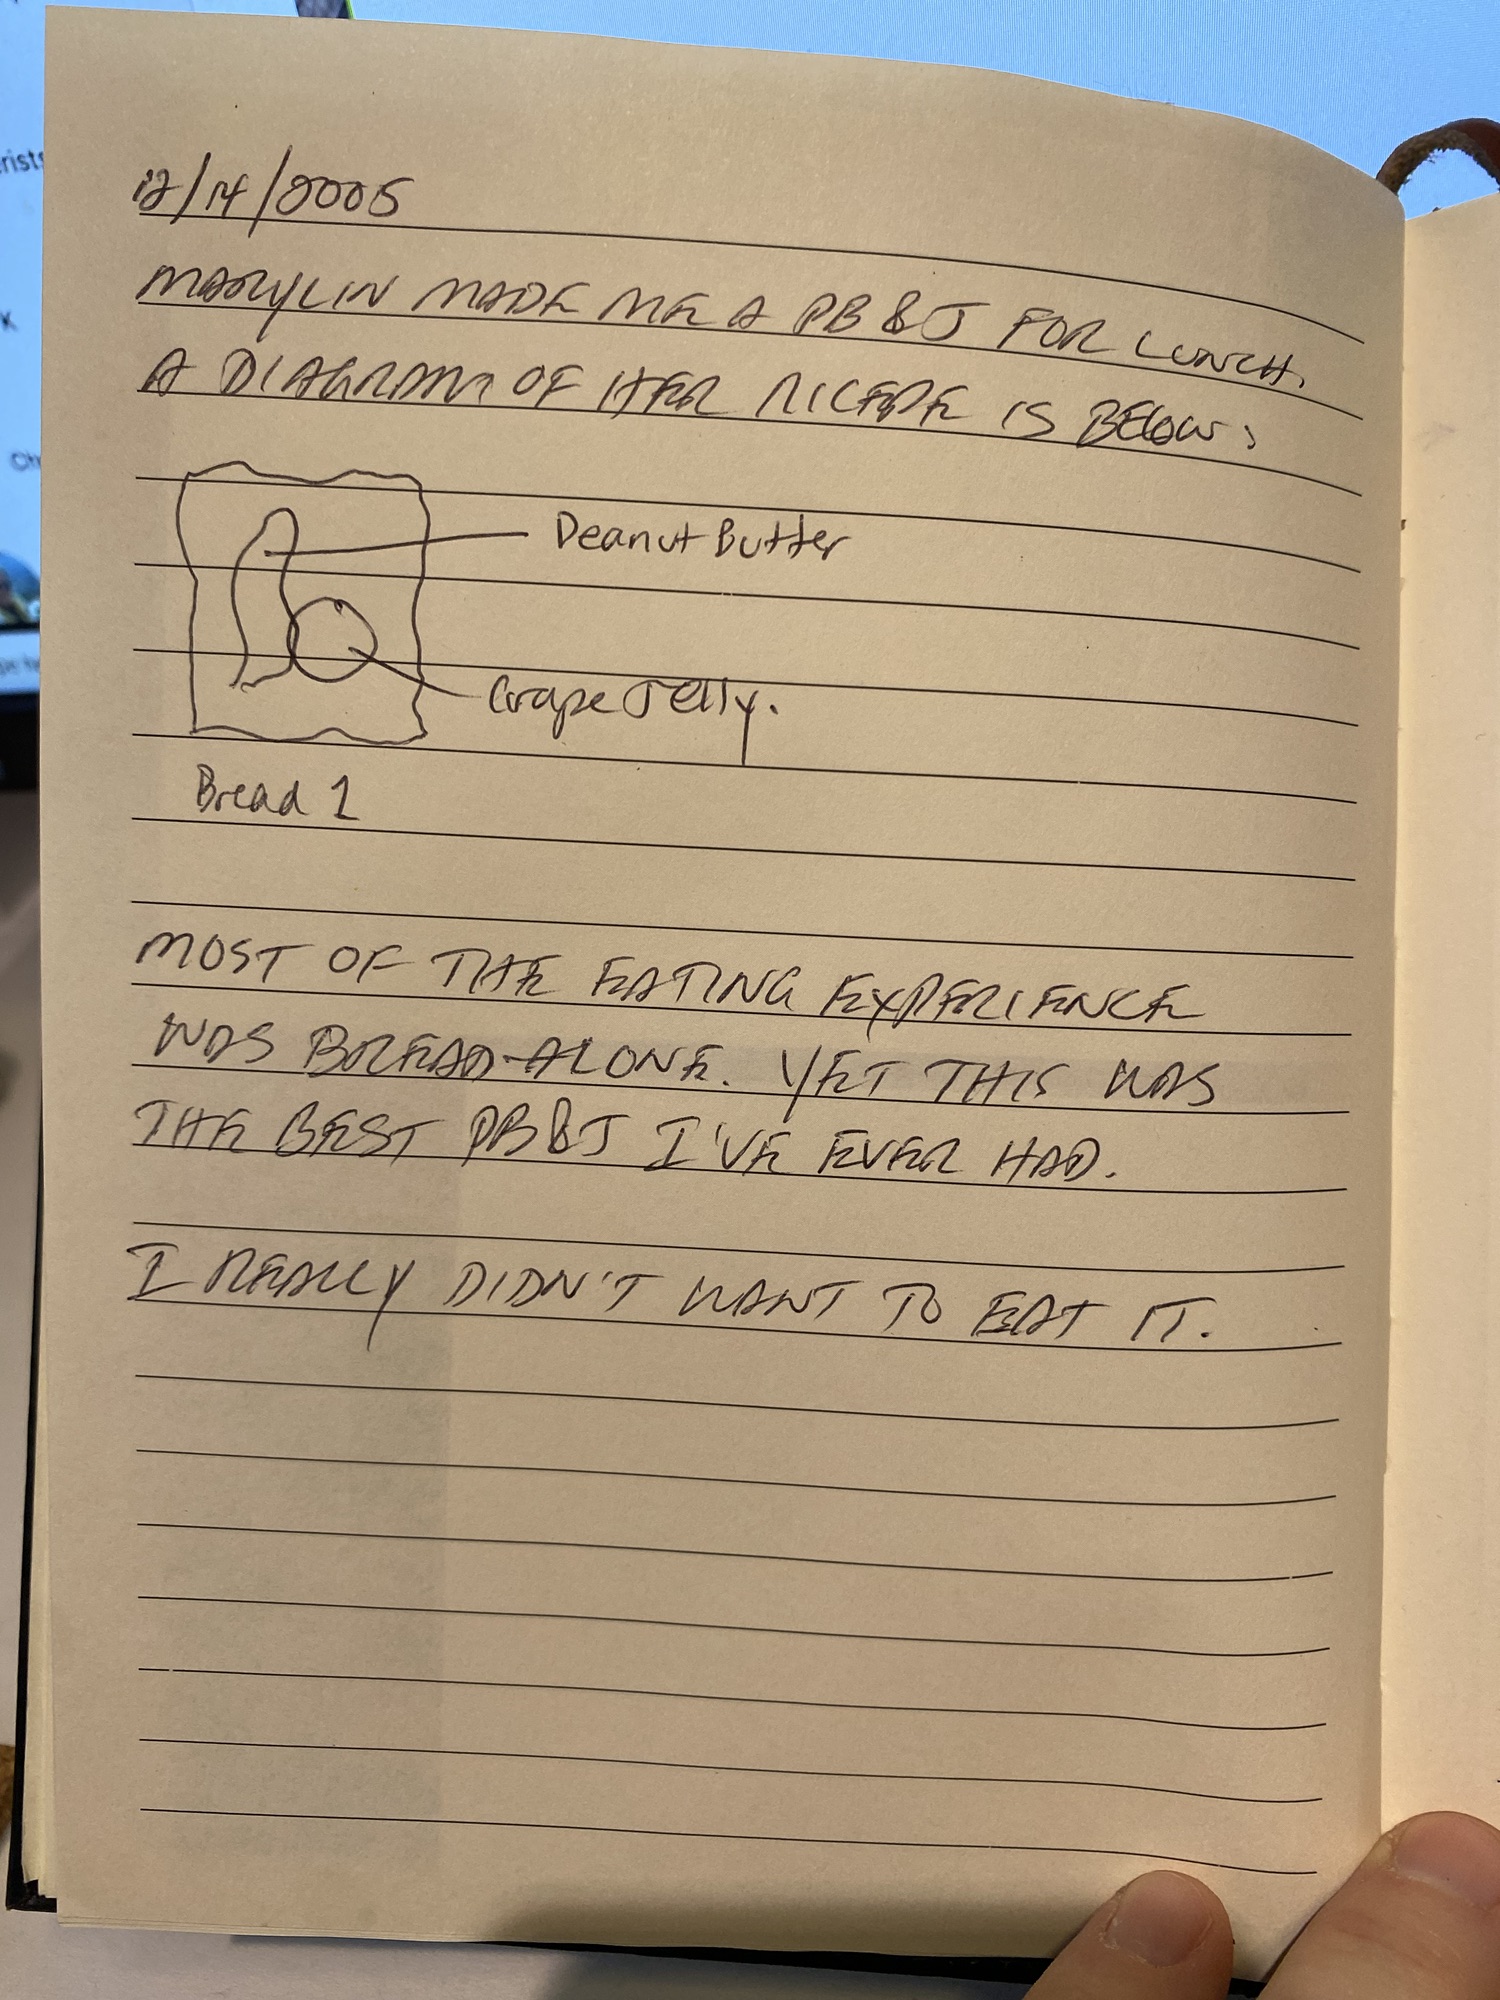 12/14/2005
MARYLIN MADE ME A PB&J FOR LUNCH.
A DIAGRAM OF HER RICEPE IS BELOW:
Peanut Butter
Grape Jelly.
Bread 1
MOST OF THE EATING EXPERIENCE
WAS BREAD-ALONE. YET THIS WAS
THE BEST PB&J I'VE EVER HAD.
I REALLY DIDN'T WANT TO EAT IT.